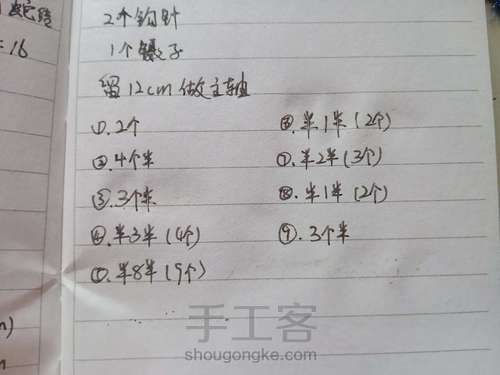 蛇结
=16
2个钩针
1个镊子
留12cm做主轴
①.2个
②.4个半
③.3个半
④.半3半(4个)
⑤.半8半(9个)
⑥.半1半(2个)
⑦.半2半(3个)
⑧.半1半(2个)
⑨.3个半
m)
手工客
shougongke.com